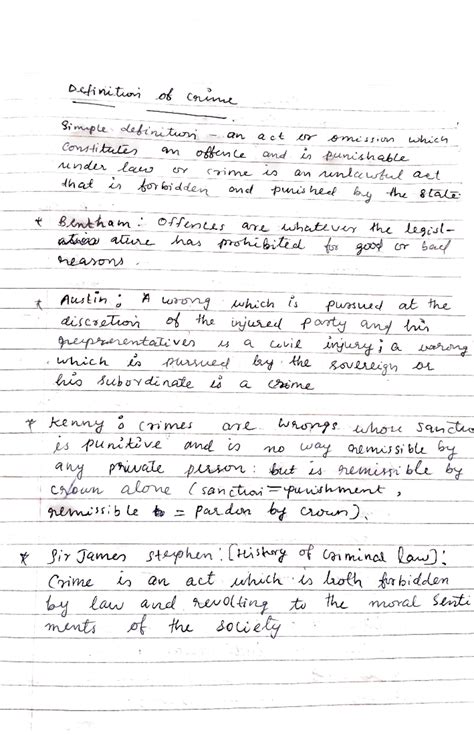 Definition of crime
Simple definition - an act or omission which
constitutes an offence and is punishable
under law or crime is an unlawful act
that is forbidden and punished by the state.
* Bentham : Offences are whatever the legisl-
ature has prohibited for good or bad
reasons.
* Austin : A wrong which is pursued at the
discretion of the injured party and his
representatives is a civil injury ; a wrong
which is pursued by the sovereign or
his subordinate is a crime
* Kenny : Crimes are wrongs whose sanctio
is punitive and is no way remissible by
any private person : but is remissible by
crown alone (sanction = punishment,
remissible = pardon by crown).
* Sir James Stephen : [History of Criminal law] :
Crime is an act which is both forbidden
by law and revolting to the moral senti
ments of the society